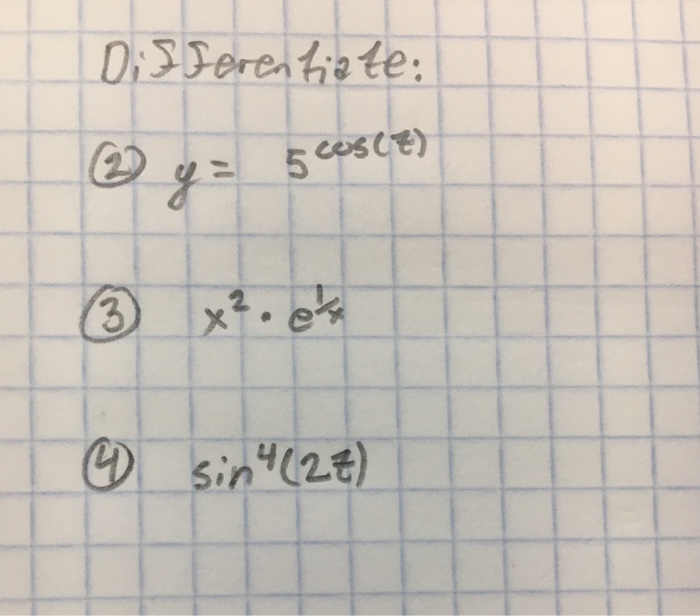 Differentiate:
② y = 5^cos(z)
③ x² · e^1/x
④ sin⁴(2z)